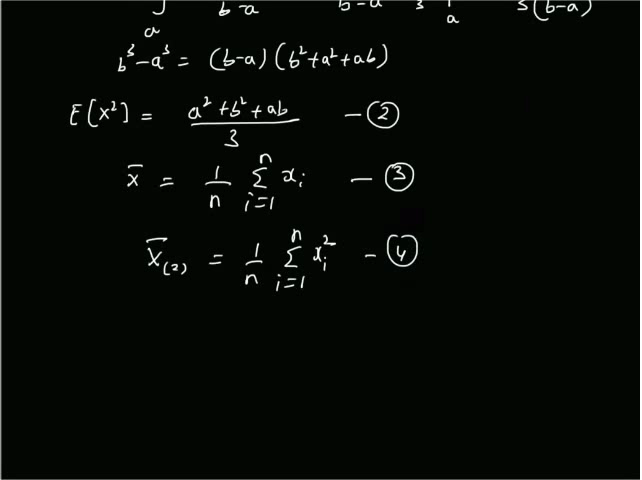 ∫ₐ b-a b-a 3 a 3(b-a)
b³-a³ = (b-a)(b²+a²+ab)
E[X²] = (a²+b²+ab)/3 - ②
x̄ = 1/n ∑ᵢ₌₁ⁿ xᵢ - ③
X̄₍₂₎ = 1/n ∑ᵢ₌₁ⁿ xᵢ² - ④